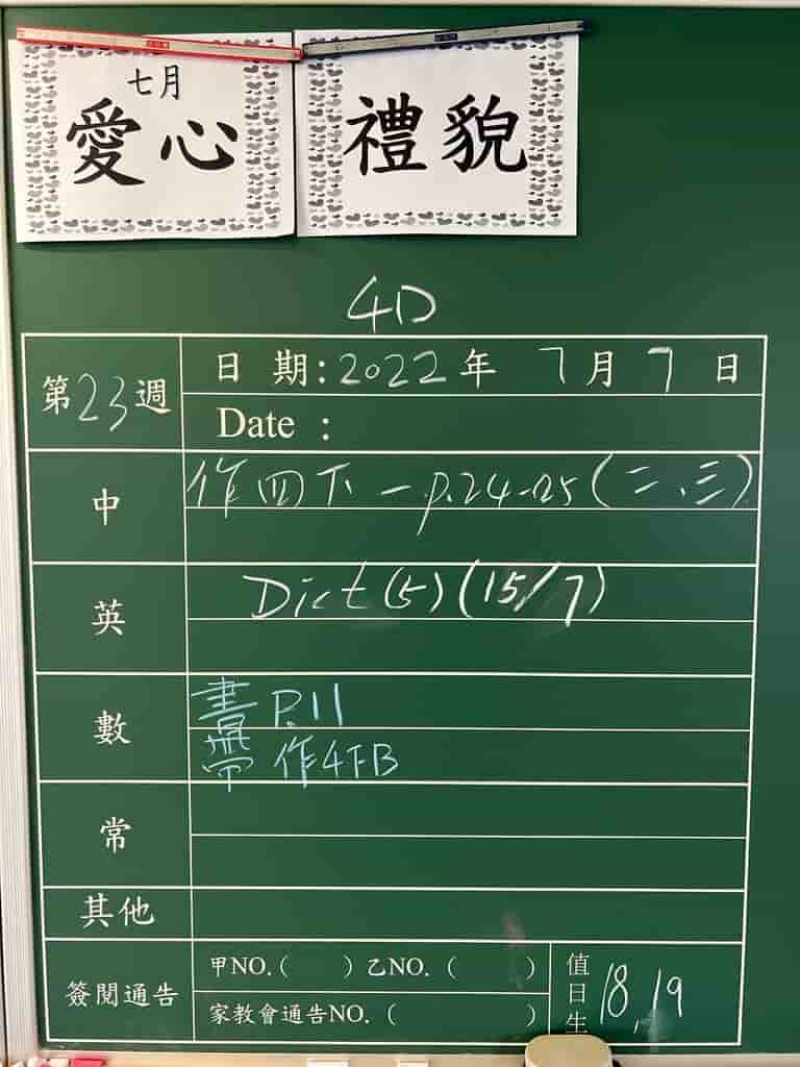 七月
愛心
禮貌
4D
第23週
日期:2022年 7月 7 日
Date :
中
作四下一p.24-25(二、三)
英
Dict (5) (15/7)
數
書 P.11
帶 作4下B
常
其他
簽閱通告
甲NO.( ) 乙NO.( )
家教會通告NO.( )
值日生
18, 19